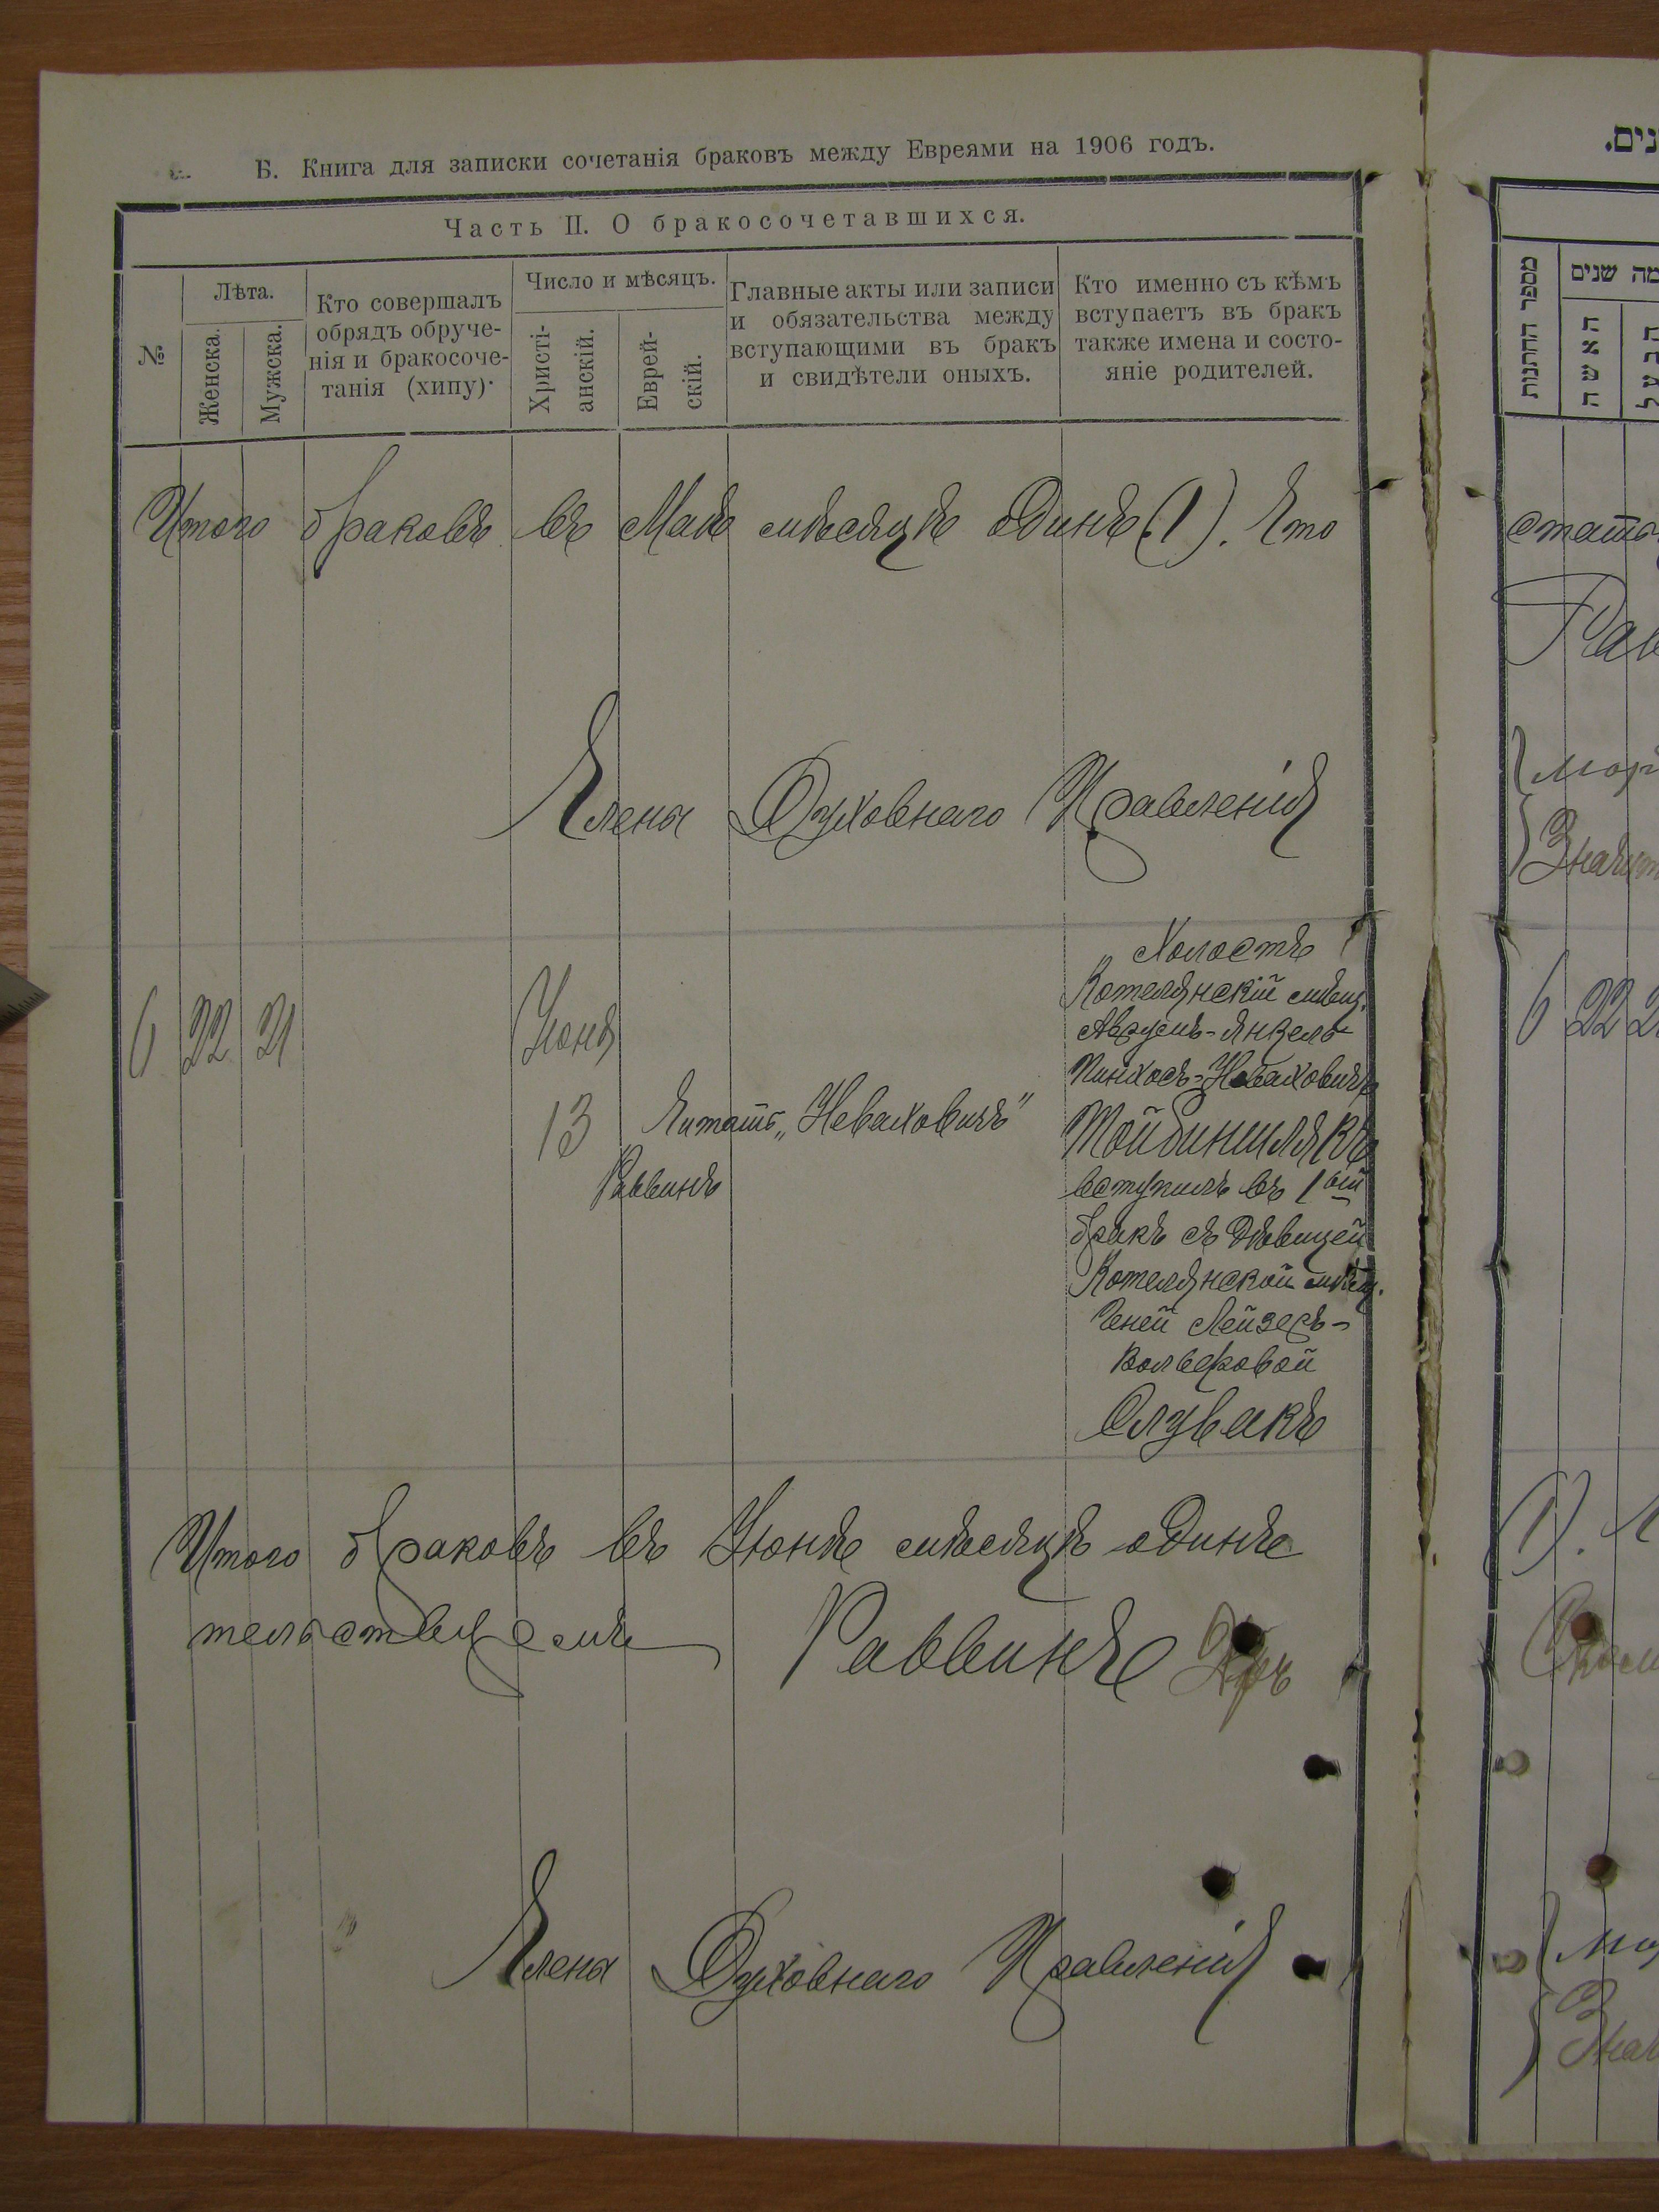 Б. Книга для записки сочетанія браковъ между Евреями на 1906 годъ.
Часть II. О бракосочетавшихся.
№
Лѣта.
Женска.
Мужска.
Кто совершалъ
обрядъ обруче-
нія и бракосоче-
танія (хипу).
Число и мѣсяцъ.
Христі-
анскій.
Еврей-
скій.
Главные акты или записи
и обязательства между
вступающими въ бракъ
и свидѣтели оныхъ.
Кто именно съ кѣмъ
вступаетъ въ бракъ
также имена и состо-
яніе родителей.
Итого браковъ въ Маѣ мѣсяцѣ одинъ (1). Что
Члены Духовнаго Правленія
6 22 21 Іюня
13
Читатъ „Неваховичъ"
Раввинъ
Холостъ
Котелянскій мѣщ.
Аврумъ-Янкель
Пинхосъ-Неваховичъ
Мойбиншлякъ
вступилъ въ 1ый
бракъ съ дѣвицей
Котелянской мѣщ.
Геней Лейзеръ-
Вольковой
Слувакъ
Итого браковъ въ Іюнѣ мѣсяцѣ одинъ
тельствуемъ Раввинъ
Члены Духовнаго Правленія
מספר החתנות
האשה
הבעל
6 22
(1).